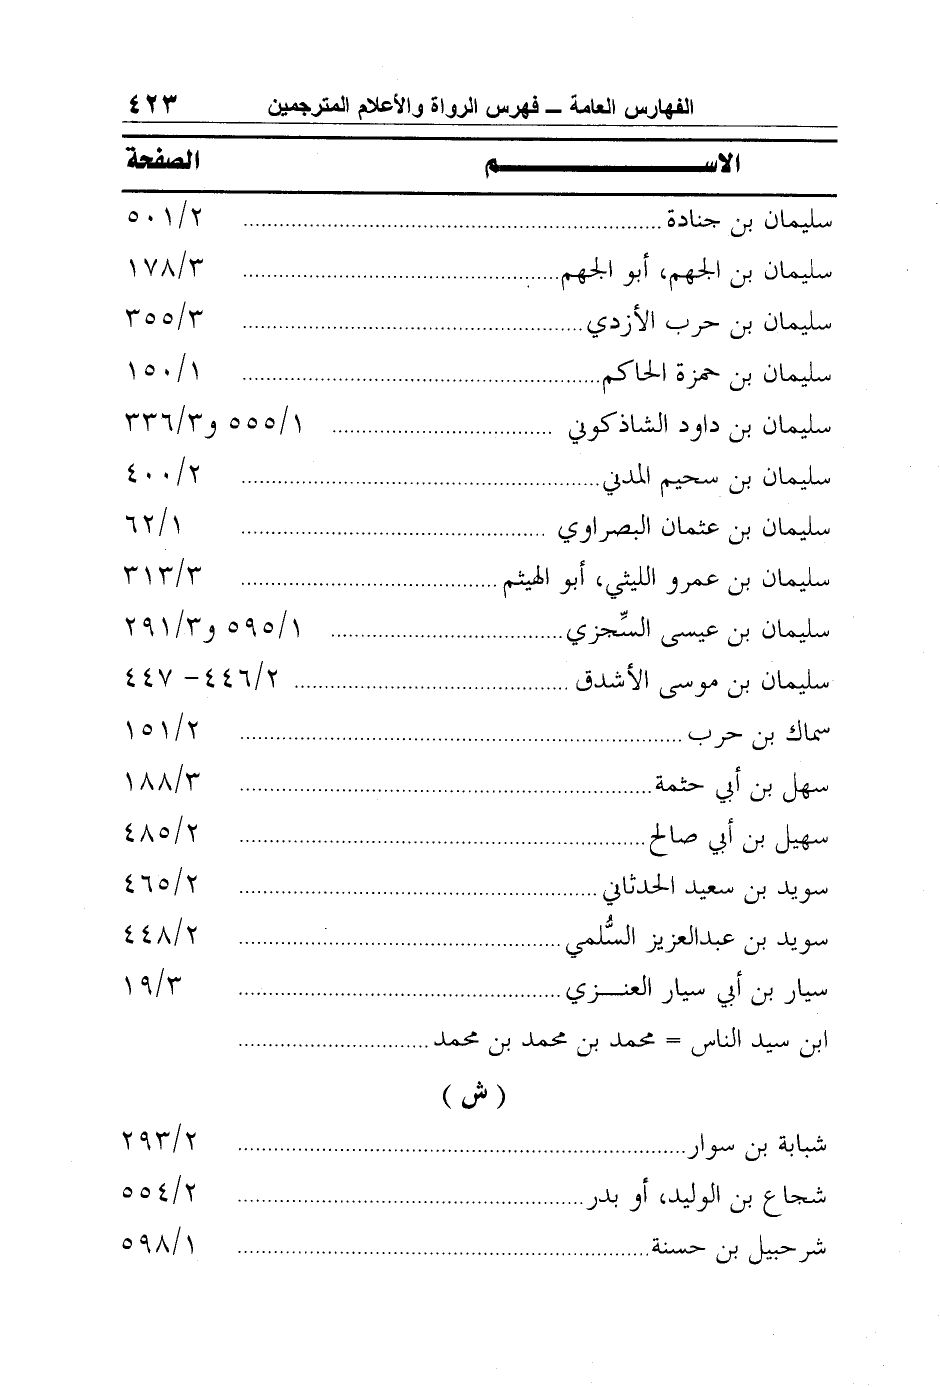 الفهارس العامة ــ فهرس الرواة والأعلام المترجمين ٤٢٣
الاســـــــــــــــــم الصفحة
سليمان بن جنادة ........................ ٥٠١/٢
سليمان بن الجهم، أبو الجهم ........................ ١٧٨/٣
سليمان بن حرب الأزدي ........................ ٣٥٥/٣
سليمان بن حمزة الحاكم ........................ ١٥٠/١
سليمان بن داود الشاذكوني ........................ ٥٥٥/١ و٣٣٦/٣
سليمان بن سحيم المدني ........................ ٤٠٠/٢
سليمان بن عثمان البصراوي ........................ ٦٢/١
سليمان بن عمرو الليثي، أبو الهيثم ........................ ٣١٣/٣
سليمان بن عيسى السِّجزي ........................ ٥٩٥/١ و٢٩١/٣
سليمان بن موسى الأشدق ........................ ٤٤٦/٢- ٤٤٧
سماك بن حرب ........................ ١٥١/٢
سهل بن أبي حثمة ........................ ١٨٨/٣
سهيل بن أبي صالح ........................ ٤٨٥/٢
سويد بن سعيد الحدثاني ........................ ٤٦٥/٢
سويد بن عبدالعزيز السُّلمي ........................ ٤٤٨/٢
سيار بن أبي سيار العنـــزي ........................ ١٩/٣
ابن سيد الناس = محمد بن محمد بن محمد ........................
( ش )
شبابة بن سوار ........................ ٢٩٣/٢
شجاع بن الوليد، أو بدر ........................ ٥٥٤/٢
شرحبيل بن حسنة ........................ ٥٩٨/١